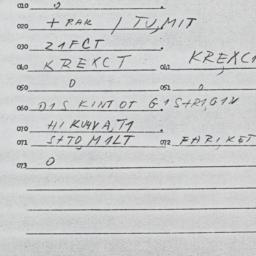 010 0
020 + PAK / TU,MIT
030 21FCT
040 KREXCT 041 KREXC
050 0 051 0
060 DIS KINTOT G1STRI,G1X
070 HIKUAVA,T1
071 S+TO,M1LT 072 FARI,KET
073 0